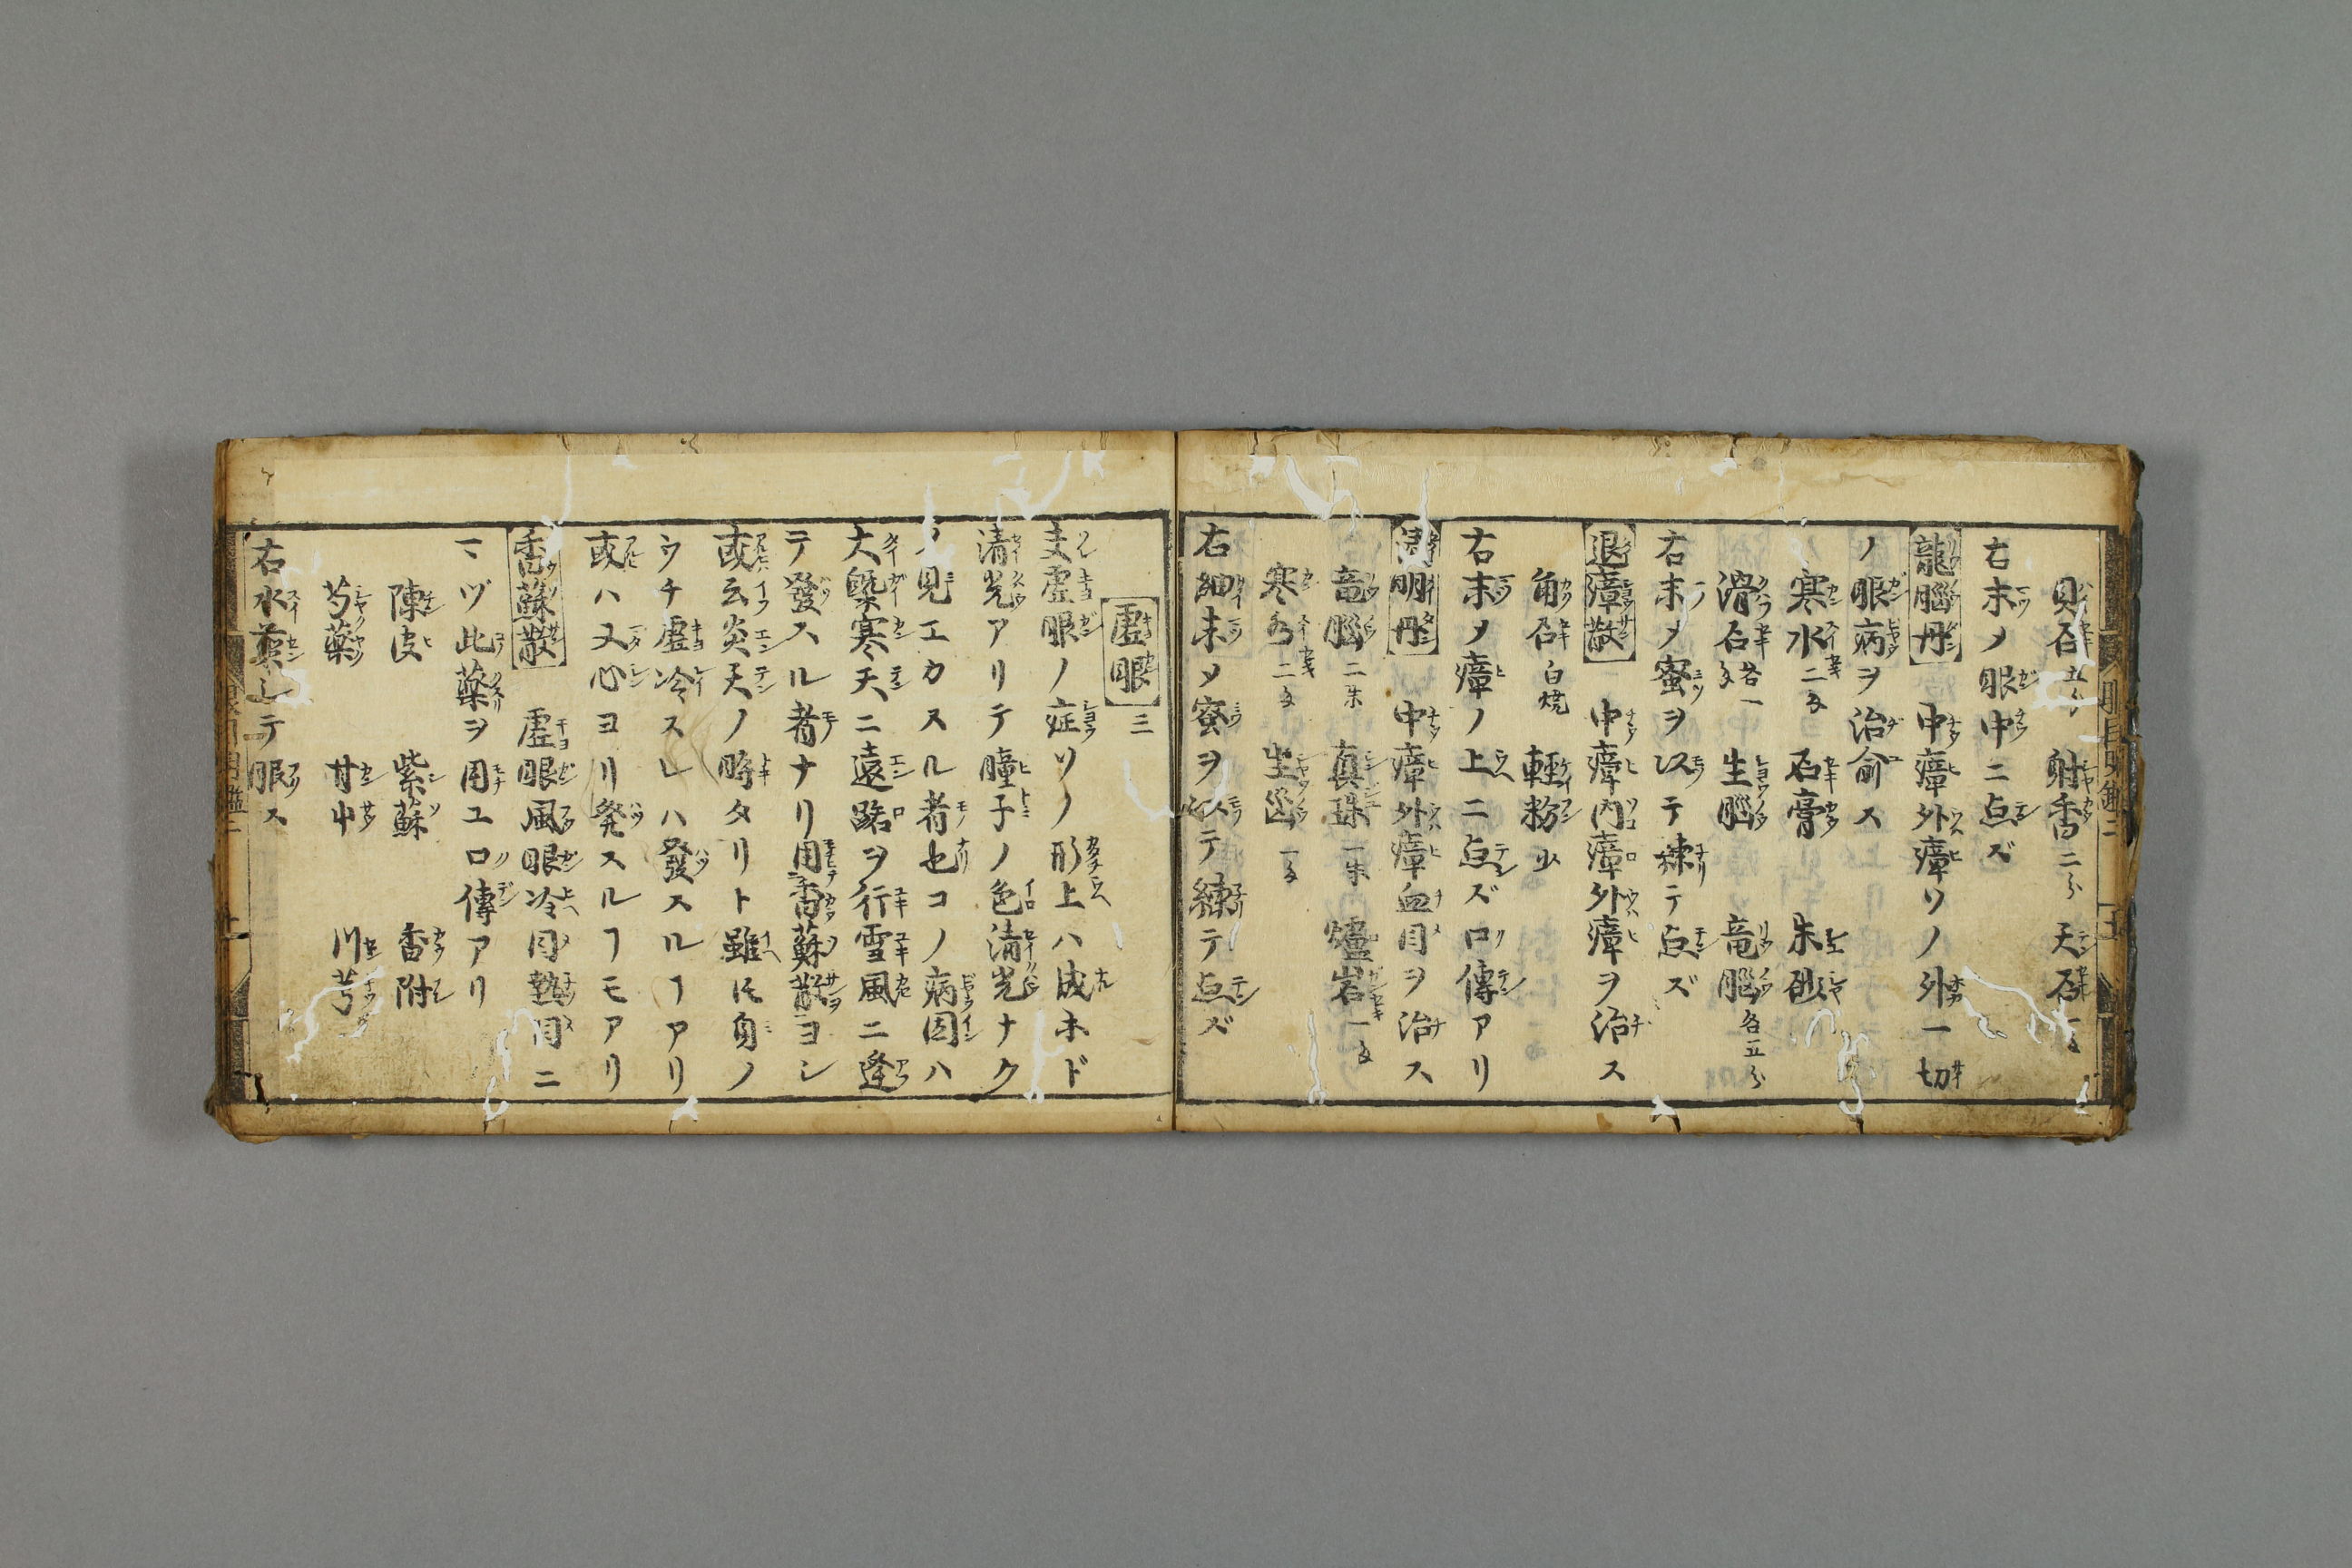 貝石 五分 射香 二分 天石 一匁
右末〆眼中ニ点ズ
龍腦丹 中瘴外瘴ソノ外一切
ノ眼病ヲ治愈ス
寒水 二匁 石膏 朱砂
滑石 各一匁 生腦 竜腦 各五分
右末〆蜜ヲ以テ練テ点ズ
退瘴散 中瘴内瘴外瘴ヲ治ス
角石 白焼 軽粉 少
右末〆瘴ノ上ニ点ズ口傳アリ
明丹 中瘴外瘴血目ヲ治ス
竜腦 二朱 真珠 一朱 爐岩 一匁
寒水 二匁 生 一匁
右細末〆蜜ヲ以テ練テ点ズ
虚眼 三
夫虚眼ノ症ソノ形上ハ成ホド
清光アリテ瞳子ノ色清光ナク
見エカスル者也コノ病因ハ
大槩寒天ニ遠路ヲ行雪風ニ逢
テ發スル者ナリ用香蘇散ヨシ
或云炎天ノ時タリト雖ドモ身ノ
ウチ虚冷スレハ發スルヿアリ
或ハ又心ヨリ発スルヿモアリ
香蘇散 虚眼風眼冷目熱目ニ
マヅ此藥ヲ用ユ口傳アリ
陳皮 紫蘇 香附
芍藥 甘中 川芎
右水煎シテ服ス